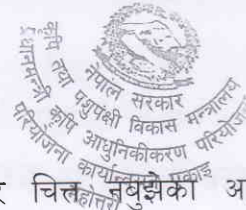 नेपाल सरकार
कृषि तथा पशुपंक्षी विकास मन्त्रालय
प्रधानमन्त्री कृषि आधुनिकीकरण परियोजना
परियोजना कार्यान्वयन इकाइ
महोत्तरी
र चित्त नबुझेका अ